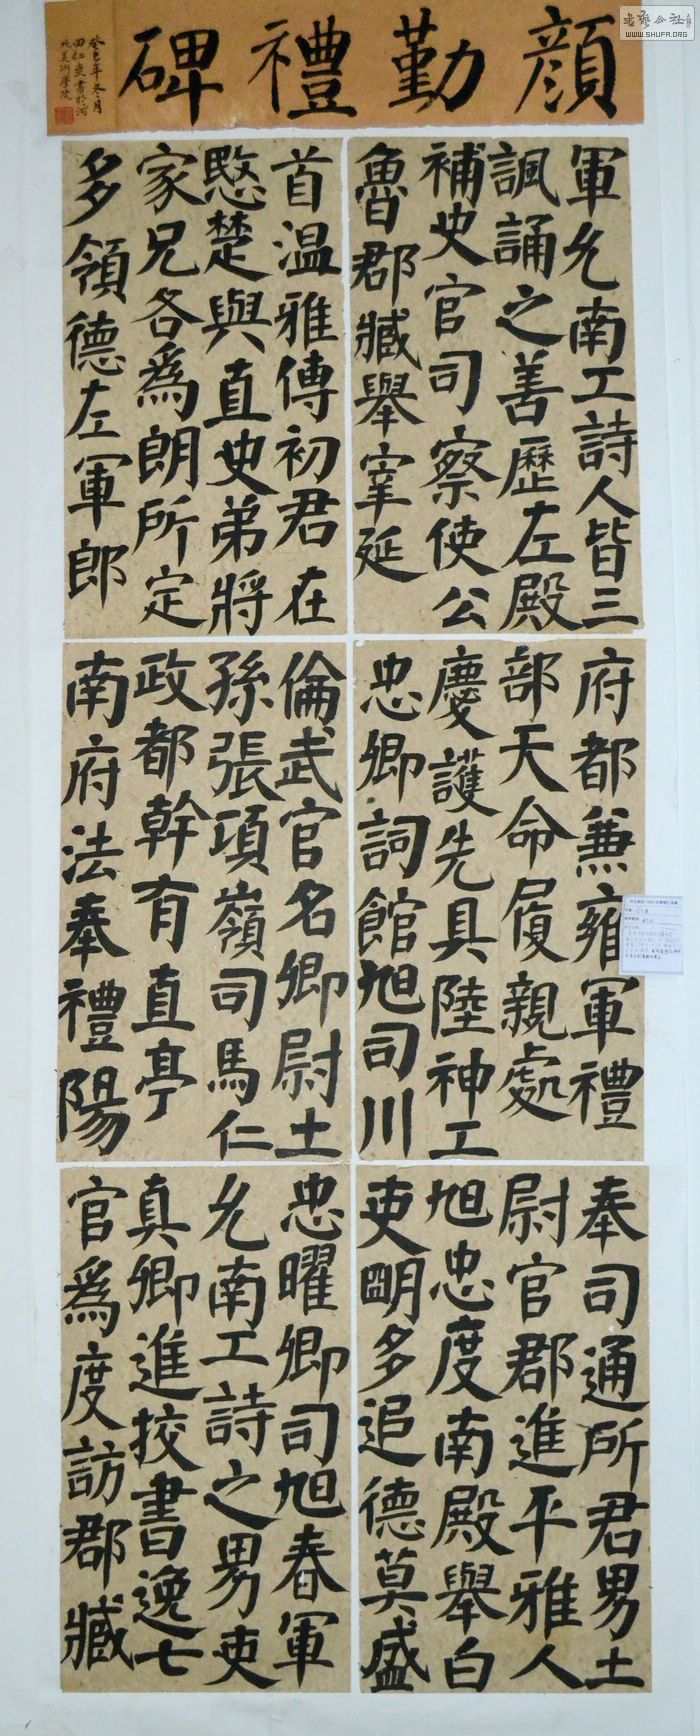 顏勤禮碑
癸巳年冬月
書於河
北美術學院
書藝公社
WWW.SHUFA.ORG
軍允南工詩人皆三
諷誦之善歷左殿
補史官司察使公
魯郡臧舉宰延
首温雅傳初君在
愍楚與直史弟將
家兄各為朗所定
多領德左軍郎
府都兼雍軍禮
部天命履親處
慶護先具陸神工
忠卿詞館旭司川
倫武官名卿尉土
孫張項嶺司馬仁
政都幹有直亭
南府法奉禮陽
奉司通所君男土
尉官郡進平雅人
旭忠度南殿舉白
吏明多追德莫盛
忠曜卿司旭春軍
允南工詩之男吏
真卿進挍書逸七
官為度訪郡臧